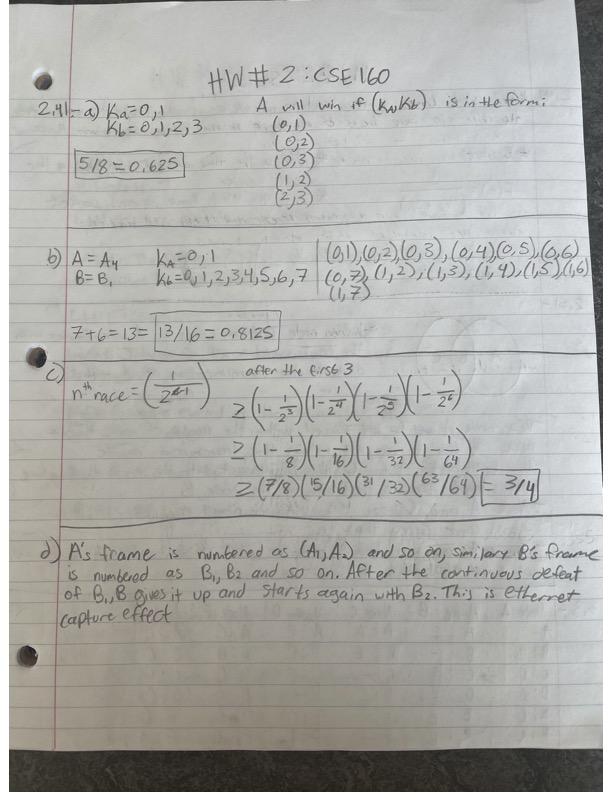 HW # 2 : CSE 160
2.41 - a) Ka = 0, 1 A will win if (Ka, Kb) is in the form:
Kb = 0, 1, 2, 3 (0,1)
(0,2)
5/8 = 0.625 (0,3)
(1,2)
(2,3)
b) A = A4 KA = 0, 1 (0,1), (0,2), (0,3), (0,4), (0,5), (0,6)
B = B1 Kb = 0, 1, 2, 3, 4, 5, 6, 7 (0,7), (1,2), (1,3), (1,4), (1,5), (1,6)
(1,7)
7 + 6 = 13 = 13/16 = 0.8125
c) after the first 3
nth race = (1/2^(n-1)) ≥ (1 - 1/2^3)(1 - 1/2^4)(1 - 1/2^5)(1 - 1/2^6)
≥ (1 - 1/8)(1 - 1/16)(1 - 1/32)(1 - 1/64)
≥ (7/8)(15/16)(31/32)(63/64) = 3/4
d) A's frame is numbered as (A1, A2) and so on, similary B's frame
is numbered as B1, B2 and so on. After the continuous defeat
of B1, B gives it up and starts again with B2. This is ethernet
capture effect